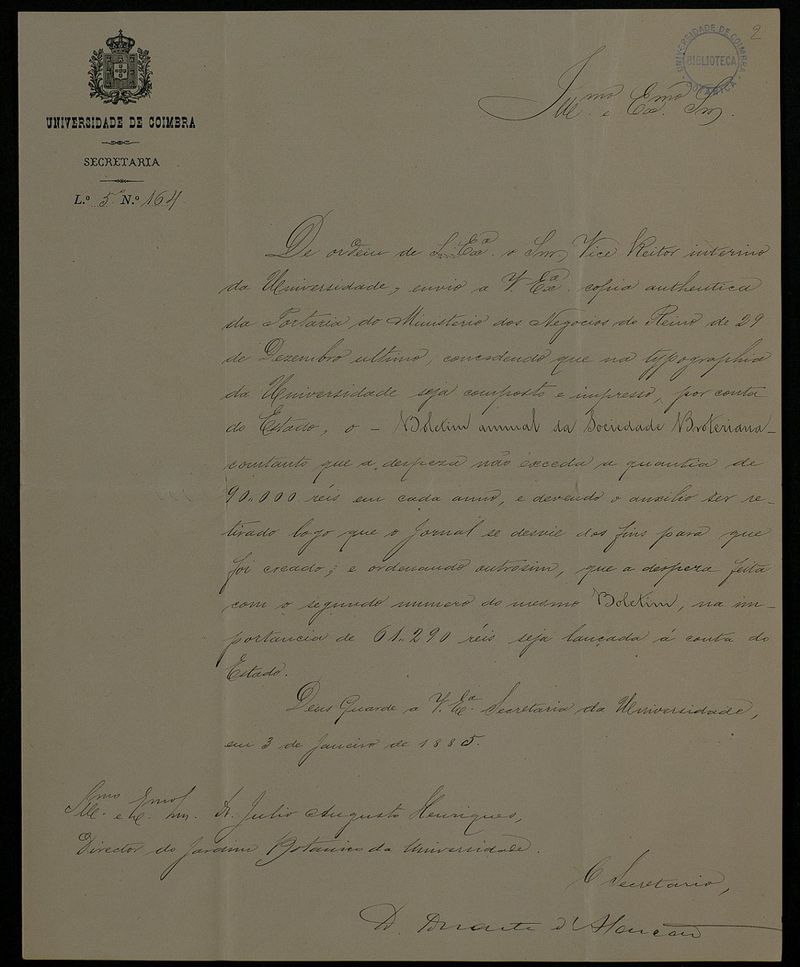 2
UNIVERSIDADE DE COIMBRA
BIBLIOTECA
BOTANICA
UNIVERSIDADE DE COIMBRA
SECRETARIA
L.º 5º N.º 164
Ill.mo e Ex.mo Snr.
De ordem de S. Ex.ª o Snr. Vice Reitor interino
da Universidade, envio a V. Ex.ª copia authentica
da Portaria do Ministerio dos Negocios do Reino de 29
de Dezembro ultimo, concedendo que na typographia
da Universidade seja composto e impresso, por conta
do Estado, o - Boletim annual da Sociedade Broteriana -
comtanto que a despeza não exceda a quantia de
90.000 réis em cada anno, e devendo o auxilio ser re-
tirado logo que o Jornal se desvie dos fins para que
foi creado; e ordenando outrosim, que a despeza feita
com o segundo numero do mesmo Boletim, na im-
portancia de 61.290 réis seja lançada á conta do
Estado.
Deus Guarde a V. Ex.ª Secretaria da Universidade,
em 3 de Janeiro de 1885.
Ill.mo e Ex.mo Snr. Dr. Julio Augusto Henriques,
Director do Jardim Botanico da Universidade.
O Secretario,
D. Duarte d'Alarcão